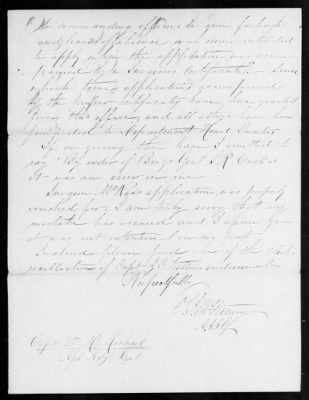 "The commanding officers to give furloughs
and leaves of absence was never intended
to apply where the application was accom-
panied by a Surgeons Certificate." Since
which time, applications accompanied
by the proper certificates have been granted
from this office, and all others have been
forwarded to Department Head Quarters
If in giving the leave I omitted to
say "By order of Brig Genl
It was an error in me
Surgeon application was properly
vouched for; I am truly sorry that any
mistake has occured and I assure you
it was not intentional on my part.
Inclosed please find one of the
of Capt endorsement
Respectfully
A.A.A.G.
Capt Wm McMichael
Asst Adjt Genl